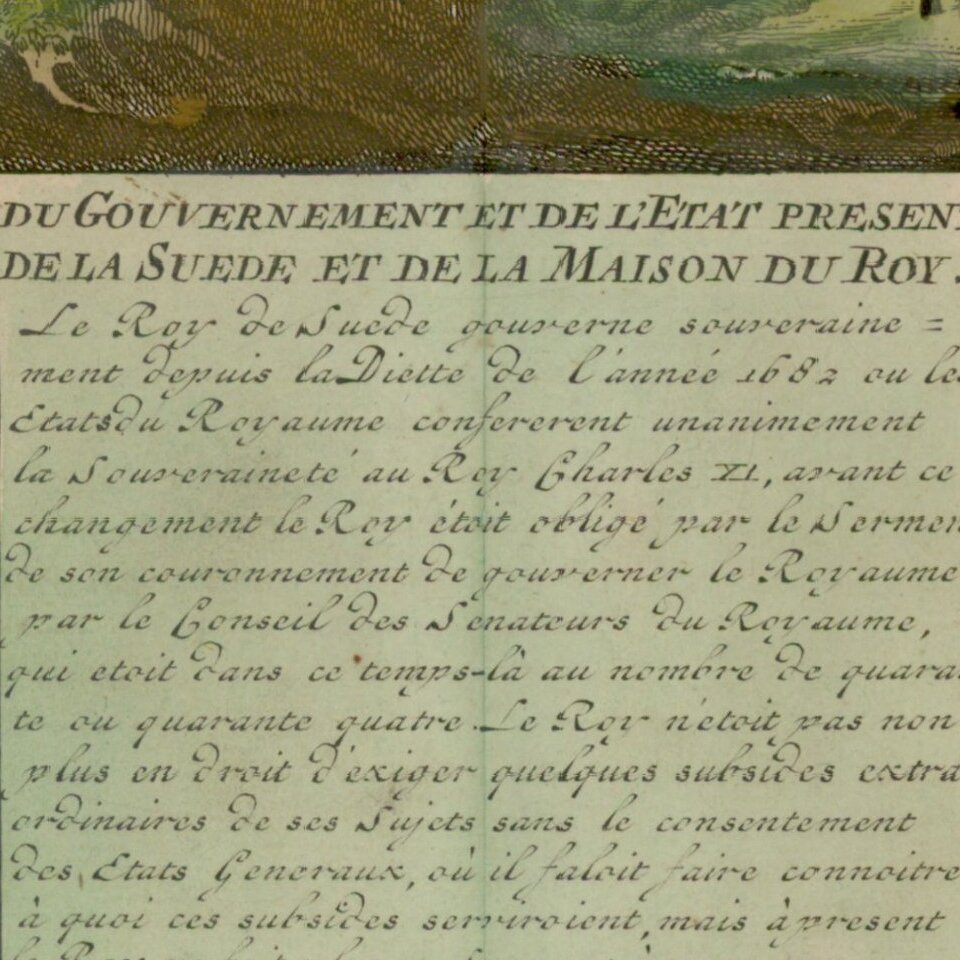 DU GOUVERNEMENT ET DE L'ETAT PRESENT
DE LA SUEDE ET DE LA MAISON DU ROY.
Le Roy de Suede gouverne souveraine =
ment depuis la Diette de l'année 1682 ou les
Etats du Royaume confererent unanimement
la Souveraineté au Roy Charles XI, avant ce
changement le Roy étoit obligé par le Serment
de son couronnement de gouverner le Royaume
par le Conseil des Senateurs du Royaume,
qui etoit dans ce temps-là au nombre de quaran
te ou quarante quatre. Le Roy n'étoit pas non
plus en droit d'exiger quelques subsides extra
ordinaires de ses Sujets sans le consentement
des Etats Generaux, où il faloit faire connoitre
à quoi ces subsides serviroient, mais à present